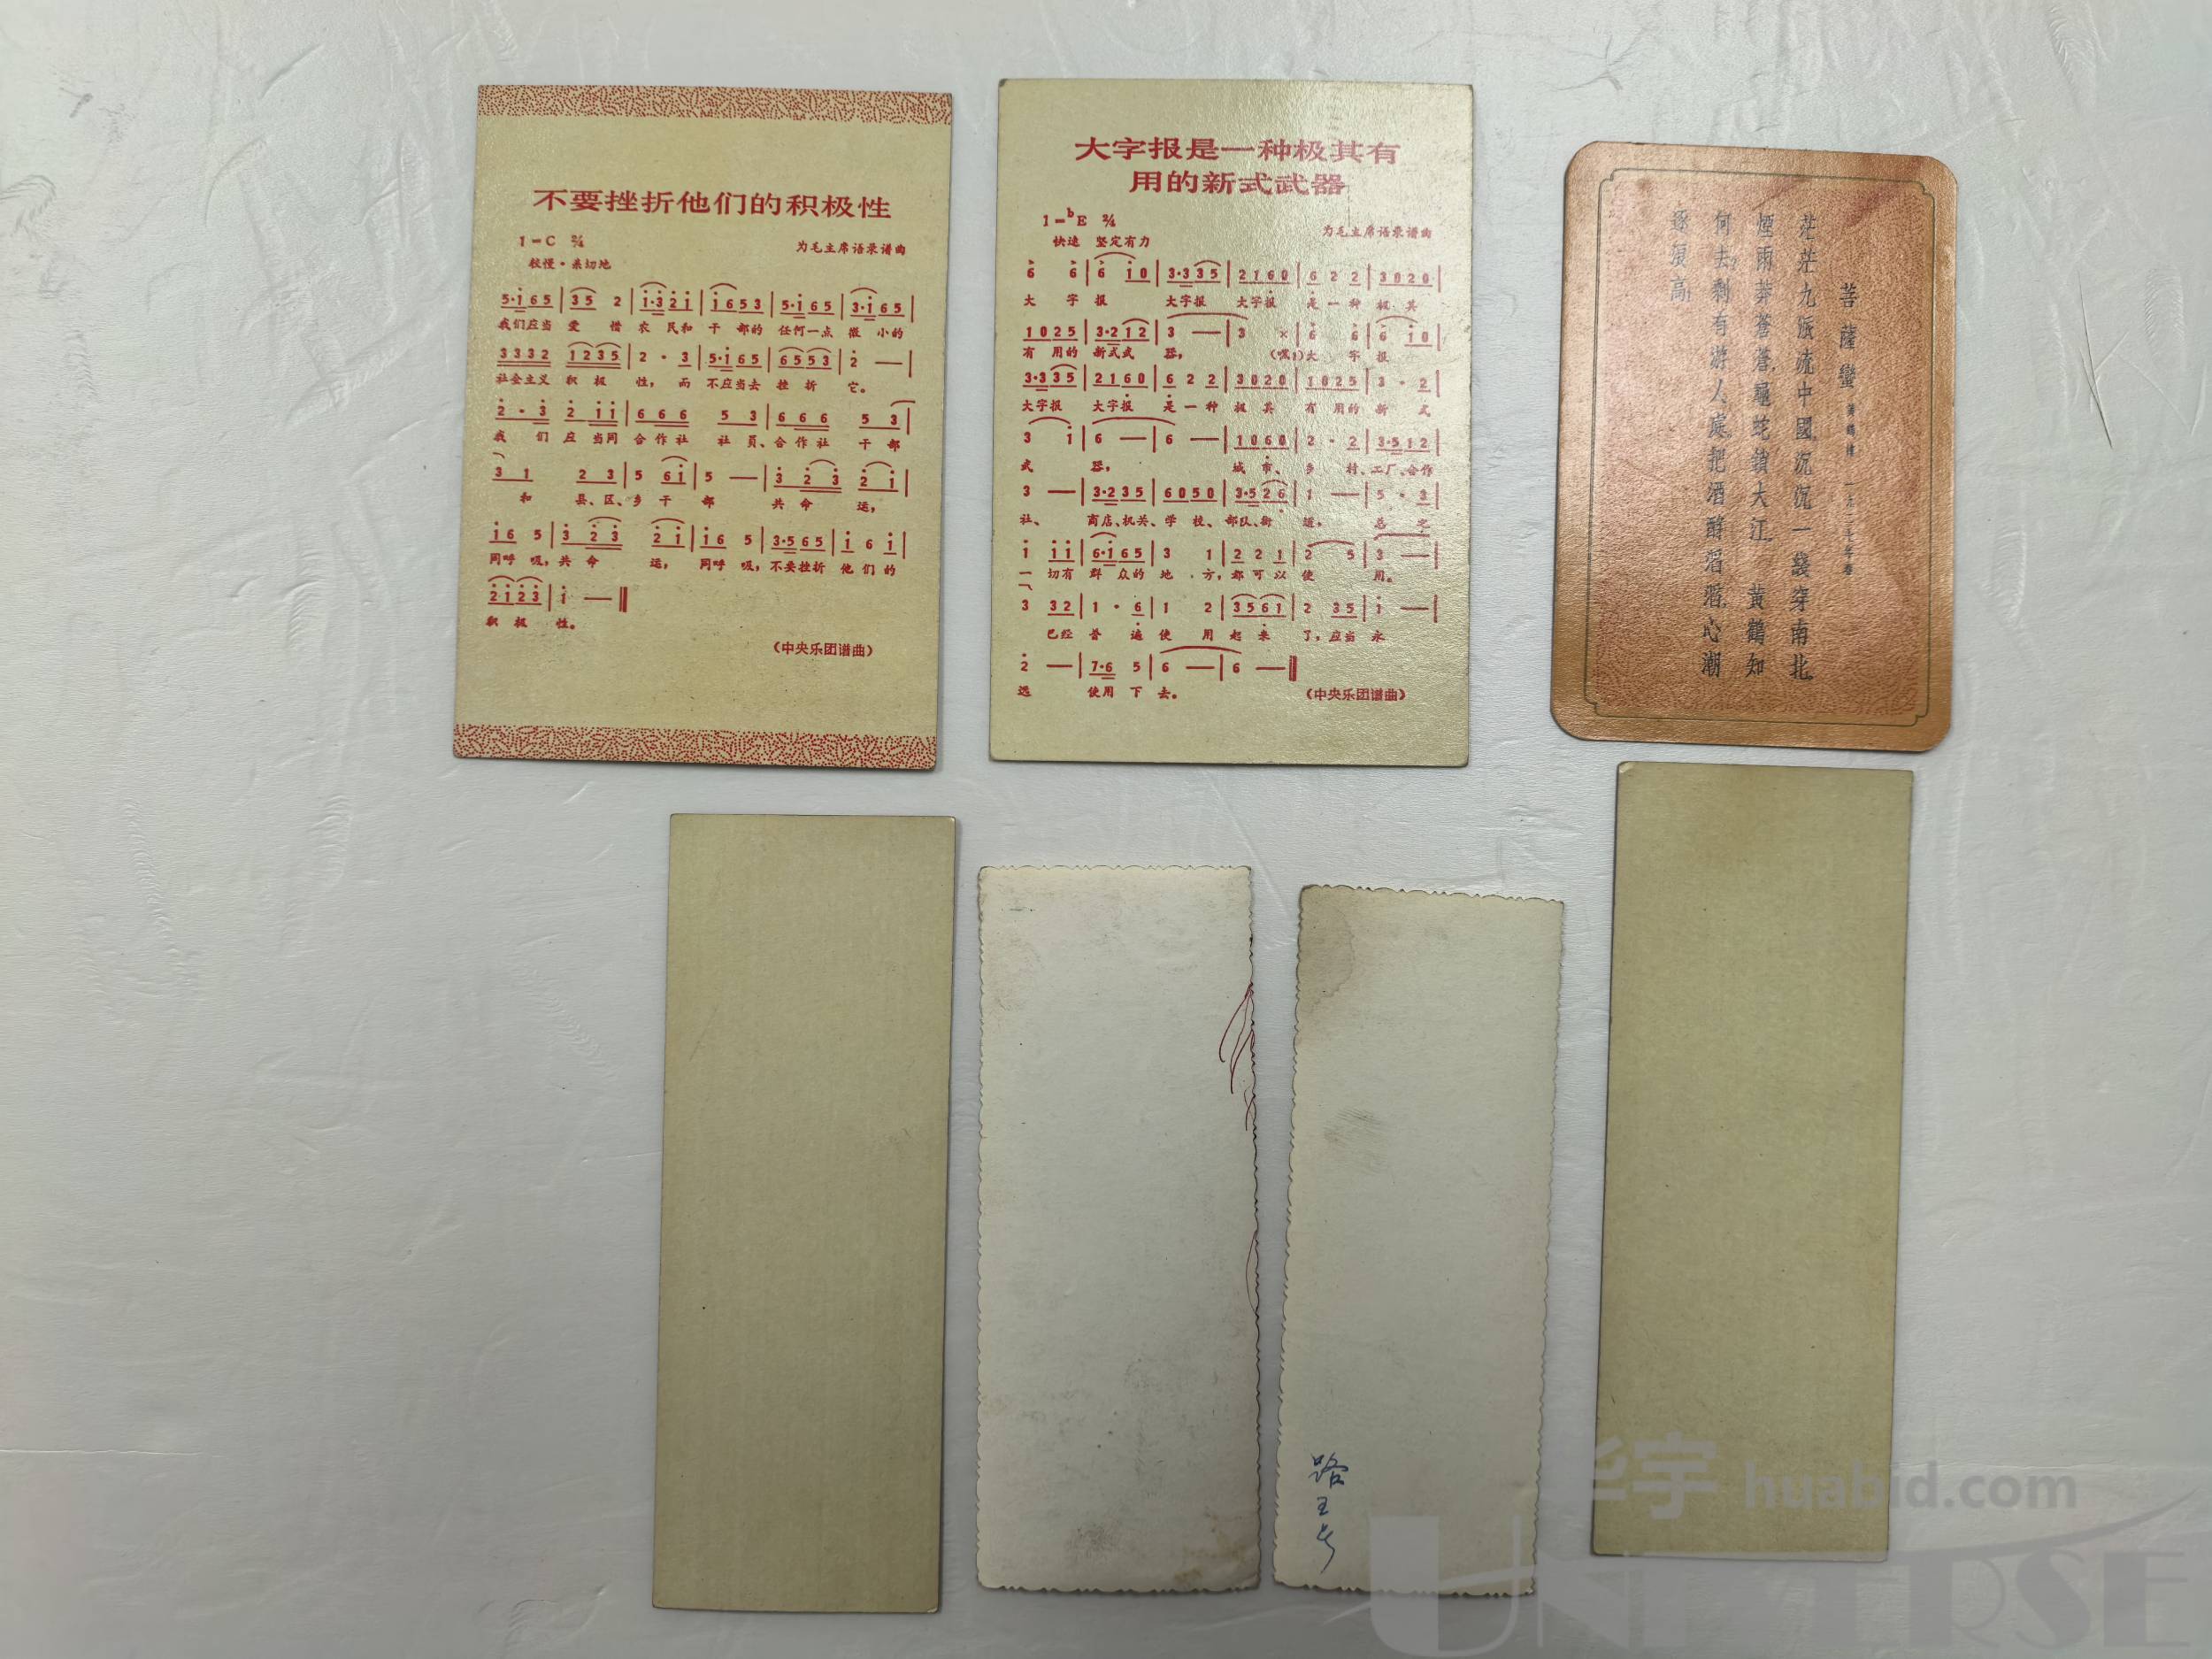 不要挫折他们的积极性
1=C 2/4
为毛主席语录谱曲
较慢·亲切地
5·i 6 5 | 3 5 2 | i·3 2 i | i 6 5 3 | 5·i 6 5 | 3·i 6 5 |
我们应当 爱 惜 农 民和 干 部的 任何一点 微 小的
3 3 3 2 1 2 3 5 | 2 · 3 | 5·i 6 5 | 6 5 5 3 | 2 — |
社会主义 积 极 性, 而 不应当去 挫 折 它。
2 · 3 2 i i | 6 6 6 5 3 | 6 6 6 5 3 |
我 们 应 当同 合 作 社 社 员、合 作 社 干 部
3 1 2 3 | 5 6 i | 5 — | 3 2 3 2 i |
和 县、区、乡 干 部 共 命 运,
i 6 5 | 3 2 3 2 i | i 6 5 | 3·5 6 5 | i 6 i |
同呼 吸,共 命 运, 同呼 吸,不要挫折 他 们 的
2 i 2 3 | i — ‖
积 极 性。
(中央乐团谱曲)
大字报是一种极其有
用的新式武器
1=bE 2/4
为毛主席语录谱曲
快速 坚定有力
6 6 | 6 i 0 | 3·3 3 5 | 2 1 6 0 | 6 2 2 | 3 0 2 0 |
大 字 报 大字报 大字报 是 一 种 极 其
1 0 2 5 | 3·2 1 2 | 3 — | 3 × | 6 6 | 6 i 0 |
有 用的 新式武 器, (嘿!)大 字 报
3·3 3 5 | 2 1 6 0 | 6 2 2 | 3 0 2 0 | 1 0 2 5 | 3 · 2 |
大字报 大字报 是 一 种 极 其 有 用的 新 式
3 i | 6 — | 6 — | 1 0 6 0 | 2 · 2 | 3·5 1 2 |
武 器, 城 市、 乡 村、工厂、合作
3 — | 3·2 3 5 | 6 0 5 0 | 3·5 2 6 | 1 — | 5 · 3 |
社、 商店、机关、学 校、部队、街 道, 总 之
i i i | 6·i 6 5 | 3 1 | 2 2 1 | 2 5 | 3 — |
一 切有 群 众的 地 方,都 可 以 使 用。
3 3 2 | 1 · 6 | 1 2 | 3 5 6 1 | 2 3 5 | i — |
已经 普 遍 使 用 起 来 了,应当 永
2 — | 7·6 5 | 6 — | 6 — ‖
远 使用 下 去。
(中央乐团谱曲)
菩薩蠻 黃鶴樓 一九二七年春
茫茫九派流中國,沉沉一綫穿南北。
煙雨莽蒼蒼,龜蛇鎖大江。 黃鶴知
何去?剩有游人處。把酒酹滔滔,心潮
逐浪高!
路
华宇 huabid.com
UNIVERSE